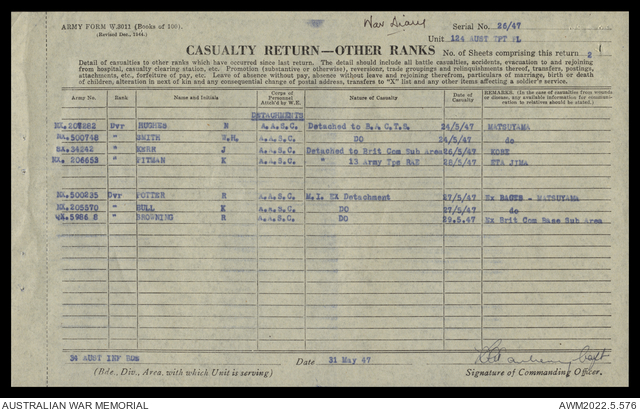 ARMY FORM W.3011 (Books of 100).
(Revised Dec., 1944.)
War Diary
Serial No. 26/47
Unit 124 AUST TPT PL
CASUALTY RETURN—OTHER RANKS
No. of Sheets comprising this return 2 1
Detail of casualties to other ranks which have occurred since last return. The detail should include all battle casualties, accidents, evacuation to and rejoining
from hospital, casualty clearing station, etc. Promotion (substantive or otherwise), reversions, trade groupings and relinquishments thereof, transfers, postings,
attachments, etc., forfeiture of pay, etc. Leave of absence without pay, absence without leave and rejoining therefrom, particulars of marriage, birth or death
of children, alteration in next of kin and any consequential change of postal address, transfers to "X" list and any other items affecting a soldier's service.
Army No. Rank Name and Initials Corps of Personnel Attch'd by W.E. Nature of Casualty Date of Casualty REMARKS. (In the case of casualties from wounds or disease, any available information for communication to relatives should be stated.)
DETACHMENTS
NX.207882 Dvr HUGHES N A.A.S.C. Detached to B.A.C.T.S. 24/5/47 MATSUYAMA
" SMITH A.A.S.C. DO 24/5/47 do
SX.34242 " KERR J A.A.S.C. Detached to Brit Com Sub Area 26/5/47 KOBE
NX.206653 " PITMAN K A.A.S.C. " 13 Army Tps RAE 28/5/47 ETA JIMA
NX.500235 Dvr POTTER R A.A.S.C. M.I. EX Detachment 27/5/47 Ex BACTS - MATSUYAMA
NX.205570 " BULL K A.A.S.C. DO 27/5/47 do
" BROWNING R A.A.S.C. DO 29.5.47 Ex Brit Com Base Sub Area
34 AUST INF BDE
Date 31 May 47
Capt
(Bde., Div., Area, with which Unit is serving)
Signature of Commanding Officer.
AUSTRALIAN WAR MEMORIAL
AWM2022.5.576